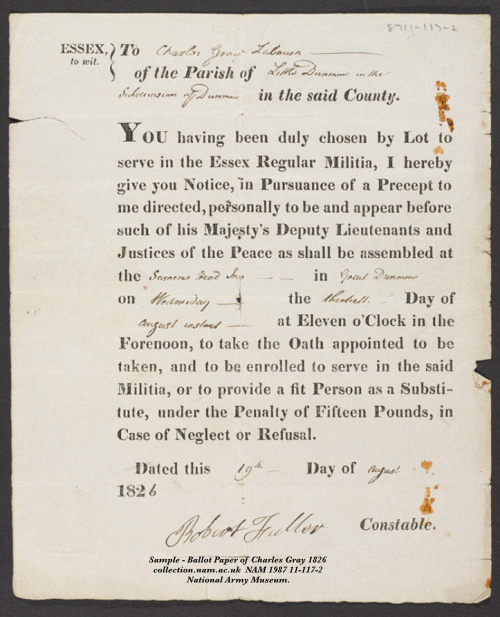 8711-117-2
ESSEX, To Charles Gray
to wit. of the Parish of Little Dunmow in the
Subdivision of Dunmow in the said County.
YOU having been duly chosen by Lot to
serve in the Essex Regular Militia, I hereby
give you Notice, in Pursuance of a Precept to
me directed, personally to be and appear before
such of his Majesty's Deputy Lieutenants and
Justices of the Peace as shall be assembled at
the Saracens Head Inn in Great Dunmow
on Wednesday the Day of
August instant at Eleven o'Clock in the
Forenoon, to take the Oath appointed to be
taken, and to be enrolled to serve in the said
Militia, or to provide a fit Person as a Substi-
tute, under the Penalty of Fifteen Pounds, in
Case of Neglect or Refusal.
Dated this 19th Day of August
1826
Robert Fuller Constable.
Sample - Ballot Paper of Charles Gray 1826
collection.nam.ac.uk NAM 1987 11-117-2
National Army Museum.